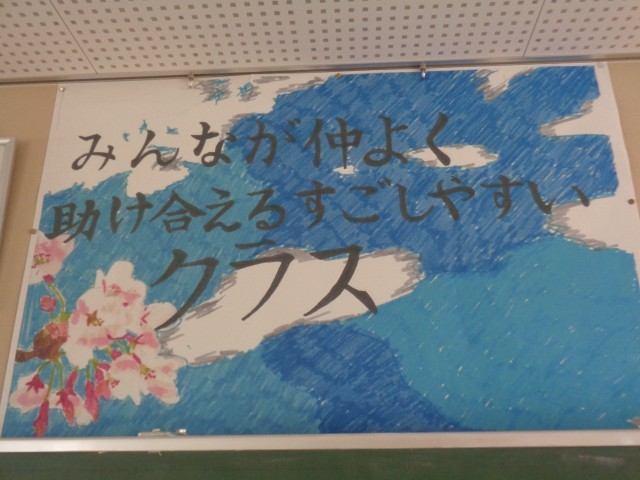 みんなが仲よく
助け合えるすごしやすい
クラス